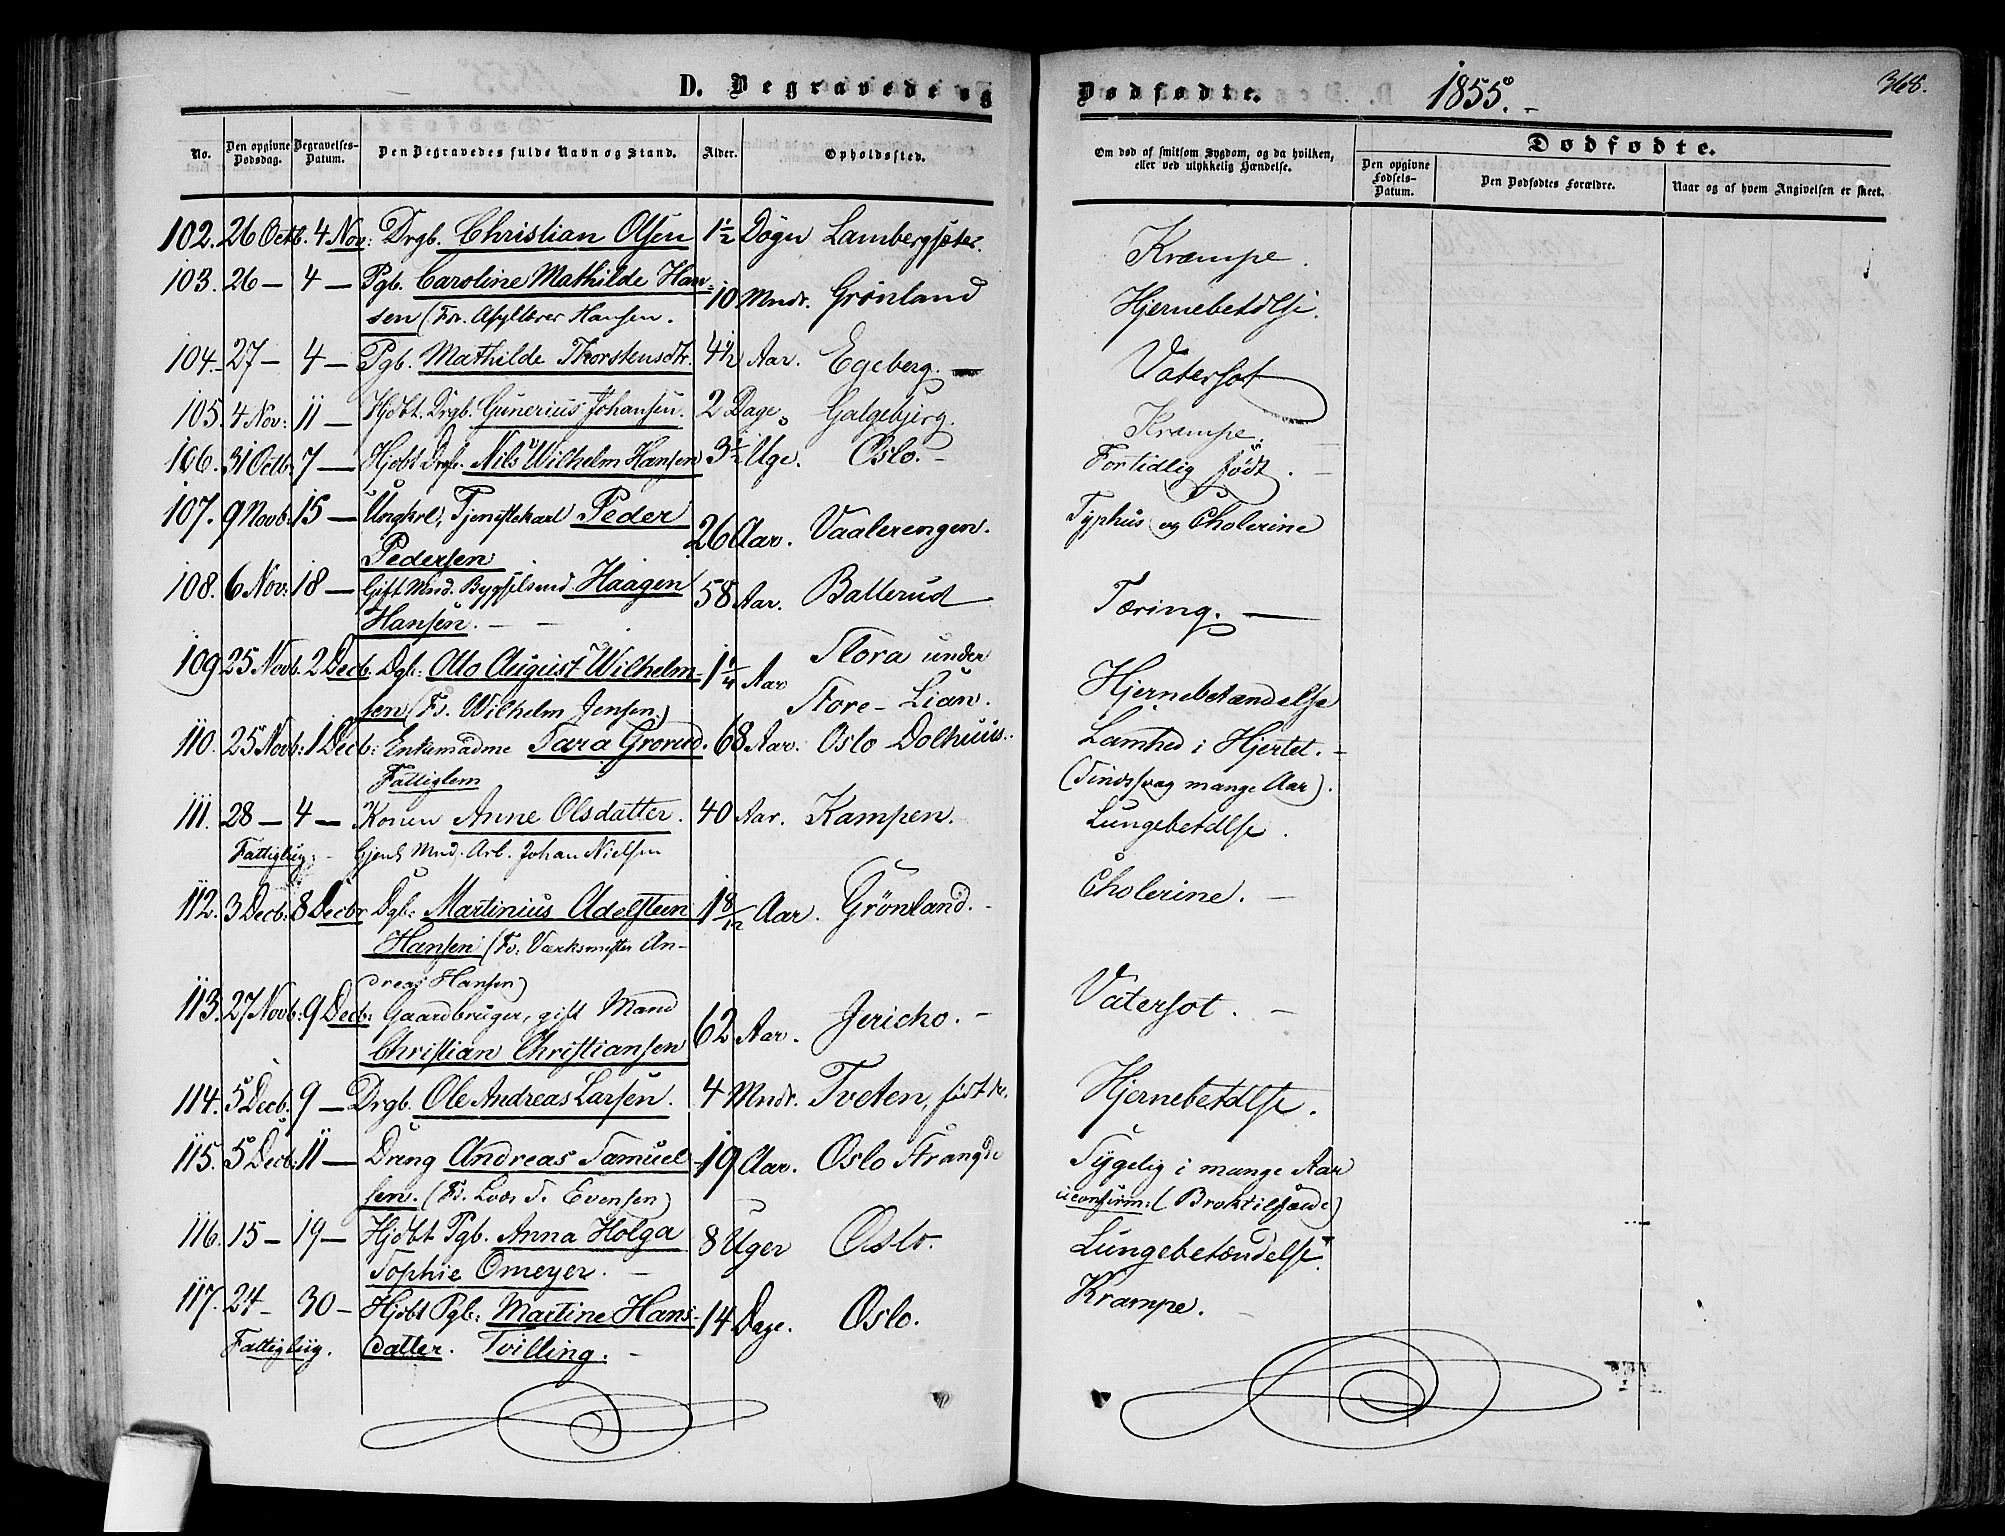 D. Begravede og Dødfødte. 1855. 368.
No. Den opgivne Dødsdag. Begravelses-Datum. Den Begravedes fulde Navn og Stand. Alder. Opholdssted. Om død af smitsom Sygdom, og da hvilken, eller ved ulykkelig Hændelse. Dødfødte. Den opgivne Fødsels-Datum. Den Dødfødtes Forældre. Naar og af hvem Angivelsen er skeet.
102. 26 Octb. 4 Nov: Drgb. Christian Olsen 1½ Døgn Lambergsæter. Krampe.
103. 26 — 4 — Pgb. Caroline Mathilde Han- 10 Mndr. Grønland Hjernebetdlse.
sen (Fr. Asyllærer Hansen.
104. 27 — 4 — Pgb. Mathilde Thorstensdtr. 4½ Aar. Egeberg. — Vatersot
105. 4 Nov: 11 — Hjdbt. Drgb. Gunerius Johansen. 2 Dage. Galgebjerg. Krampe.
106. 31 Octb. 7 — Hjdbt Drgb. Nils Wilhelm Hansen 3½ Uge. Oslo. - Fortidlig født. —
107. 9 Novb: 15 — Ungkrl, Tjenestekarl Peder 26 Aar. Vaalerengen. Typhus og Cholerine
Pedersen
108. 6 Nov: 18 — Gift Mnd. Bygselsmd. Haagen 58 Aar. Ballerud Tæring. —
Hansen. — —
109 25 Novb. 2 Decb. Dgb: Otto August Wilhelm- 1¼ Aar Flora under Hjernebetændelse
sen (Fr. Wilhelm Jensen) Store-Lian.
110. 25 Novb: 1 Decb: Enkemadme Sara Grorud. 68 Aar. Oslo Dolhuus. Lamhed i Hjertet. -
Fattiglem (Sindssvag mange Aar).
111. 28 — 4 — Konen Anne Olsdatter. 40 Aar. Kampen. Lungebetdlse.
Fattiglig. - Gjenl. Mnd. Arb. Johan Nielsen
112. 3 Decb: 8 Decbr Dgb: Martinius Adelsteen 1 8/12 Aar. Grönland. - Cholerine. —
Hansen (Fr. Værksmester An-
dreas Hansen)
113. 27 Novb: 9 Decb: Gaardbruger, gift Mand 62 Aar. Jericho. - Vatersot. —
Christian Christiansen
114. 5 Decb. 9 — Drgb. Ole Andreas Larsen. 4 Mndr. Tveten, født Hjernebetdlse.
115. 5 Decb: 11 — Dreng Andreas Samuel- 19 Aar. Oslo Sygelig i mange Aar
sen. (Fr. Evensen) uconfirm: (Broktilfælde)
116. 15 — 19 — Hjdbt Pgb. Anna Holga 8 Uger Oslo. Lungebetændelse.
Sophie Omeyer. —
117. 24 - 30 - Hjdbt Pgb: Martine Hans- 14 Dage. Oslo. Krampe. —
Fattiglig. datter. Tvilling. —